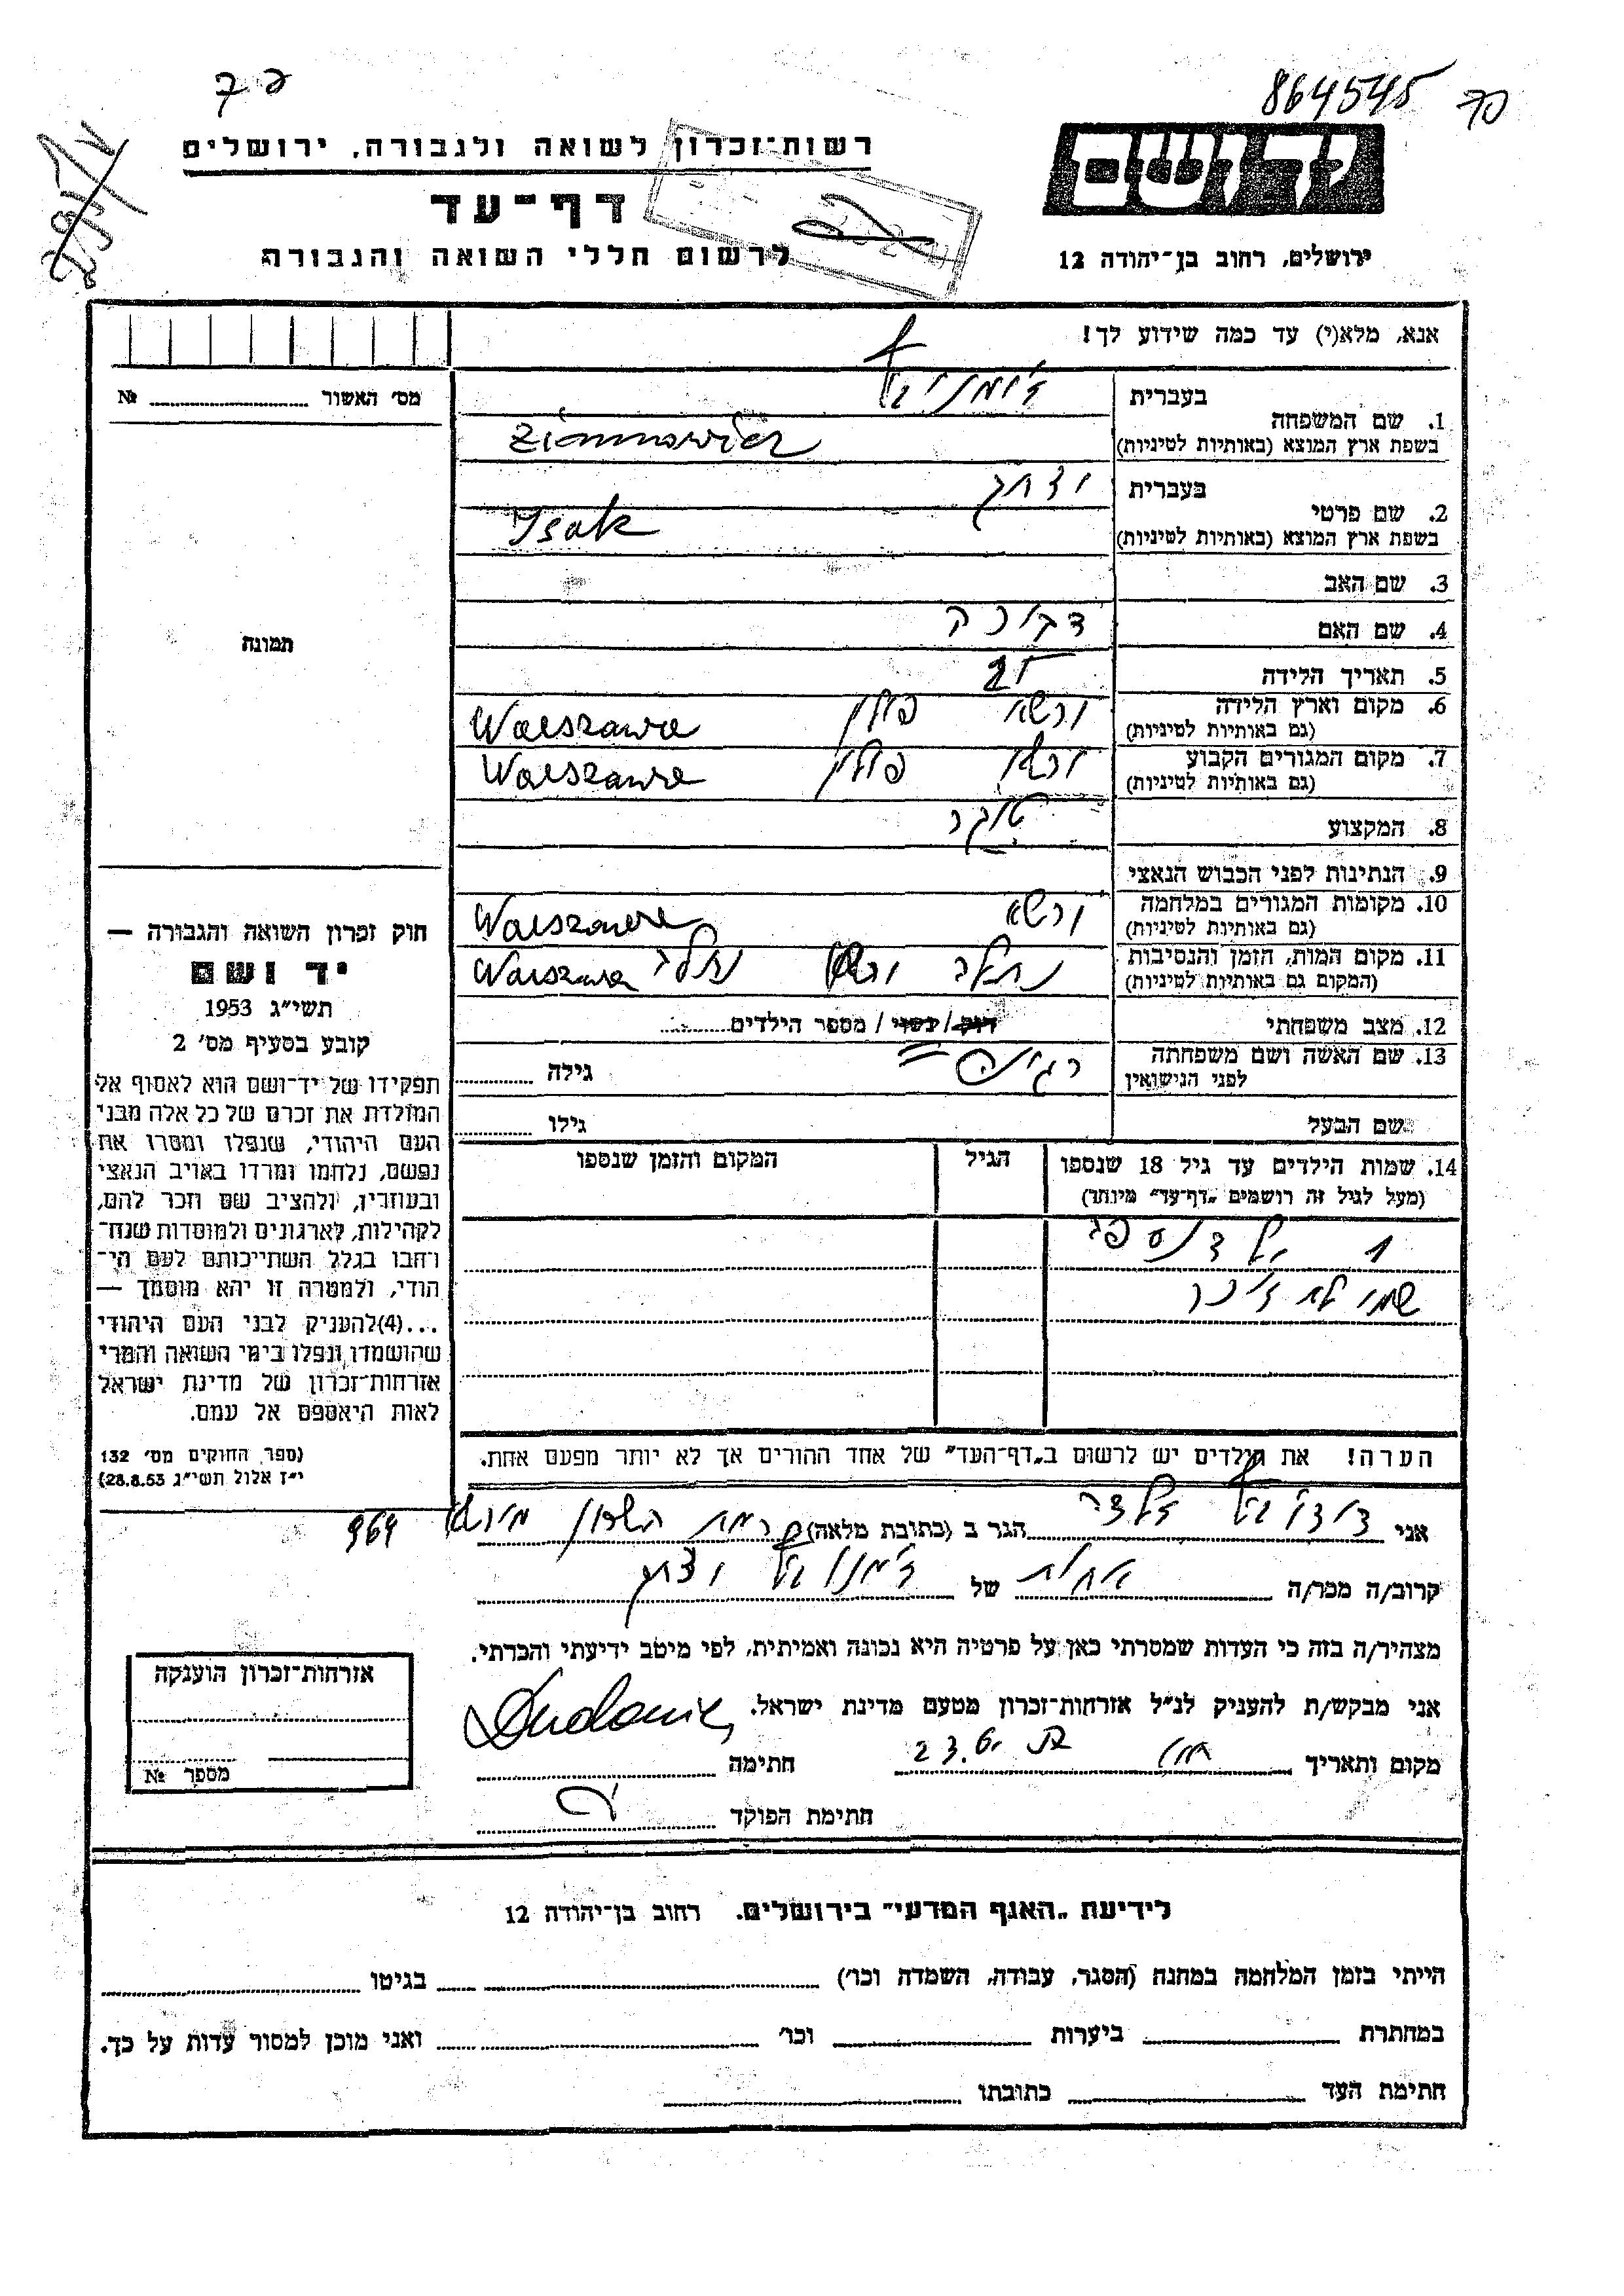 864545 70
רשות־זכרון לשואה ולגבורה, ירושלים
יד ושם
דף־עד
לרשום חללי השואה והגבורה
ירושלים, רחוב בן־יהודה 12
אנא, מלא(י) עד כמה שידוע לך!
מס׳ האשור ........ №
בעברית
1. שם המשפחה
בשפת ארץ המוצא (באותיות לטיניות)
בעברית יצחק
2. שם פרטי
בשפת ארץ המוצא (באותיות לטיניות) Isak
3. שם האב
4. שם האם
תמונה
5. תאריך הלידה
6. מקום וארץ הלידה ורשא פולין Warszawa
(גם באותיות לטיניות)
7. מקום המגורים הקבוע ורשא פולין Warszawa
(גם באותיות לטיניות)
8. המקצוע סוחר
9. הנתינות לפני הכבוש הנאצי
10. מקומות המגורים במלחמה ורשא Warszawa
(גם באותיות לטיניות)
11. מקום המות, הזמן והנסיבות ורשא Warszawa
(המקום גם באותיות לטיניות)
12. מצב משפחתי רווק / נשוי / מספר הילדים........
13. שם האשה ושם משפחתה רגינה גילה ........
לפני הנישואין
שם הבעל גילו ........
14. שמות הילדים עד גיל 18 שנספו הגיל המקום והזמן שנספו
(מעל לגיל זה רושמים „דף־עד״ מיוחד)
1
הערה! את הילדים יש לרשום ב„דף־העד״ של אחד ההורים אך לא יותר מפעם אחת.
חוק זכרון השואה והגבורה —
יד ושם
תשי״ג 1953
קובע בסעיף מס׳ 2
תפקידו של יד־ושם הוא לאסוף אל
המולדת את זכרם של כל אלה מבני
העם היהודי, שנפלו ומסרו את
נפשם, נלחמו ומרדו באויב הנאצי
ובעוזריו, ולהציב שם וזכר להם,
לקהילות, לארגונים ולמוסדות שנח־
רחבו בגלל השתייכותם לעם הי־
הודי, ולמטרה זו יהא מוסמך —
...(4)להעניק לבני העם היהודי
שהושמדו ונפלו בימי השואה והמרי
אזרחות־זכרון של מדינת ישראל
לאות היאספם אל עמם.
(ספר החוקים מס׳ 132
י״ז אלול תשי״ג 28.8.53)
אני ........ הגר ב (כתובת מלאה) רמת השרון 964
קרוב/ה מכר/ה ........ של ........ יצחק
מצהיר/ה בזה כי העדות שמסרתי כאן על פרטיה היא נכונה ואמיתית, לפי מיטב ידיעתי והכרתי.
אני מבקש/ת להעניק לנ״ל אזרחות־זכרון מטעם מדינת ישראל.
מקום ותאריך ........ חתימה ........
חתימת הפוקד ........
אזרחות־זכרון הוענקה
מספר №
לידיעת „האגף המדעי״ בירושלים. רחוב בן־יהודה 12
הייתי בזמן המלחמה במחנה (הסגר, עבודה, השמדה וכו׳) ........ בגיטו ........
במחתרת ........ ביערות ........ וכו׳ ........ ואני מוכן למסור עדות על כך.
חתימת העד ........ כתובתו ........